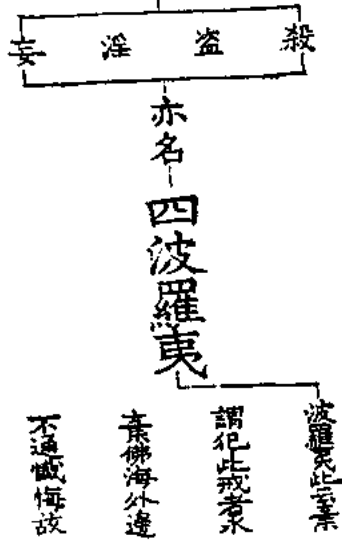 殺
盗
淫
妄
亦名
四波羅夷
波羅夷此云棄
謂犯此戒者永
棄佛海外邊
不通懺悔故